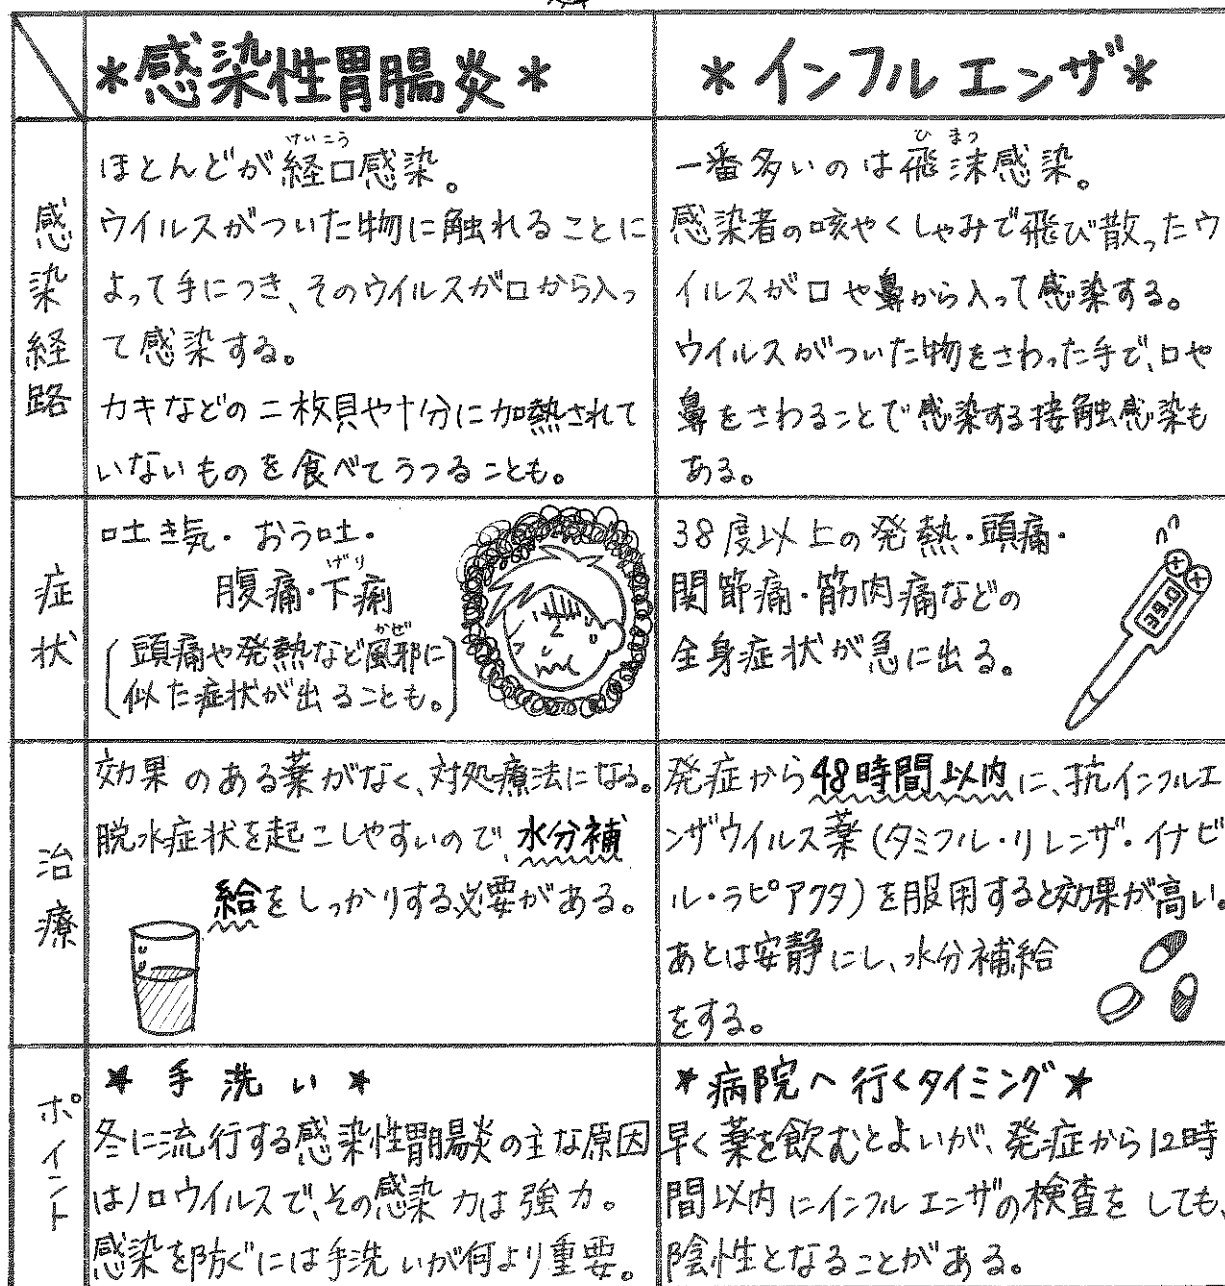 *感染性胃腸炎*
*インフルエンザ*
感染経路
けいこう
ほとんどが経口感染。
ウイルスがついた物に触れることに
よって手につき、そのウイルスが口から入っ
て感染する。
カキなどの二枚貝や十分に加熱されて
いないものを食べてうつることも。
ひまつ
一番多いのは飛沫感染。
感染者の咳やくしゃみで飛び散ったウ
イルスが口や鼻から入って感染する。
ウイルスがついた物をさわった手で、口や
鼻をさわることで感染する接触感染も
ある。
症状
吐き気・おう吐・
げり
腹痛・下痢
かぜ
頭痛や発熱など風邪に
似た症状が出ることも。
38度以上の発熱・頭痛・
関節痛・筋肉痛などの
全身症状が急に出る。
39.0
治療
効果のある薬がなく、対処療法になる。
脱水症状を起こしやすいので、水分補
給をしっかりする必要がある。
発症から48時間以内に、抗インフルエ
ンザウイルス薬(タミフル・リレンザ・イナビ
ル・ラピアクタ)を服用すると効果が高い。
あとは安静にし、水分補給
をする。
ポイント
*手洗い*
冬に流行する感染性胃腸炎の主な原因
はノロウイルスで、その感染力は強力。
感染を防ぐには手洗いが何より重要。
*病院へ行くタイミング*
早く薬を飲むとよいが、発症から12時
間以内にインフルエンザの検査をしても、
陰性となることがある。